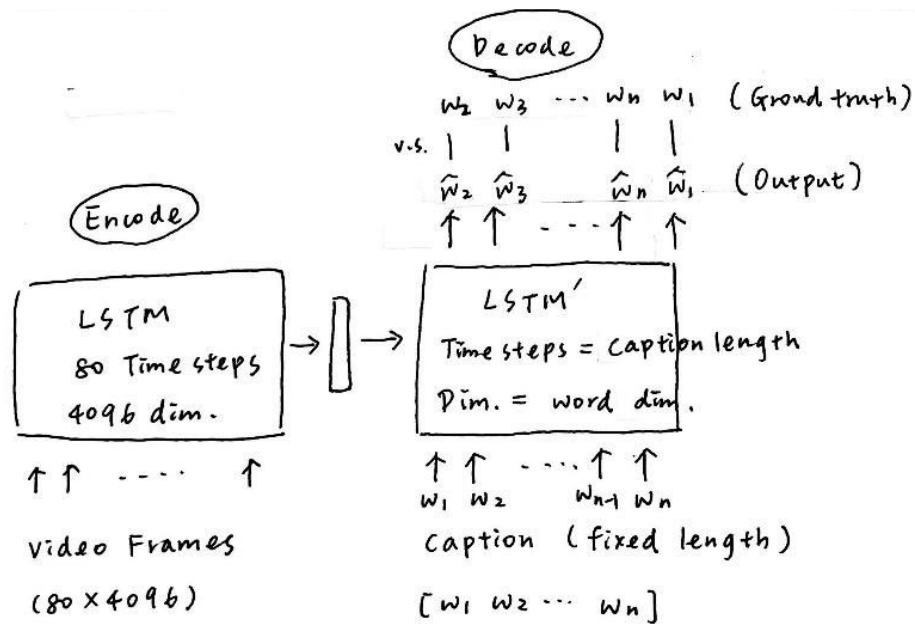 Decode
w2 w3 ... wn w1 (Grond truth)
v.s. | | | |
ŵ2 ŵ3 ŵn ŵ1 (Output)
↑ ↑ ---- ↑ ↑
Encode
LSTM
80 Time steps
4096 dim.
→ →
LSTM'
Time steps = Caption length
Dim. = word dim.
↑ ↑ ---- ↑
video Frames
(80×4096)
↑ ↑ ---- ↑ ↑
w1 w2 wn-1 wn
Caption (fixed length)
[w1 w2 ... wn]